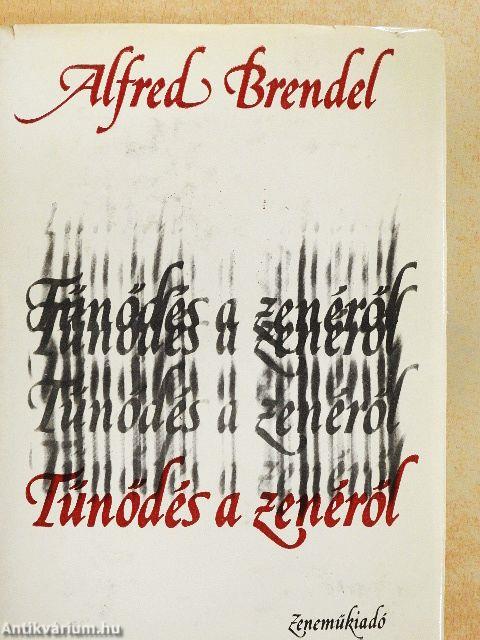 Alfred Brendel
Tűnődés a zenéről
Tűnődés a zenéről
Tűnődés a zenéről
Tűnődés a zenéről
Zeneműkiadó
Antikvárium.hu